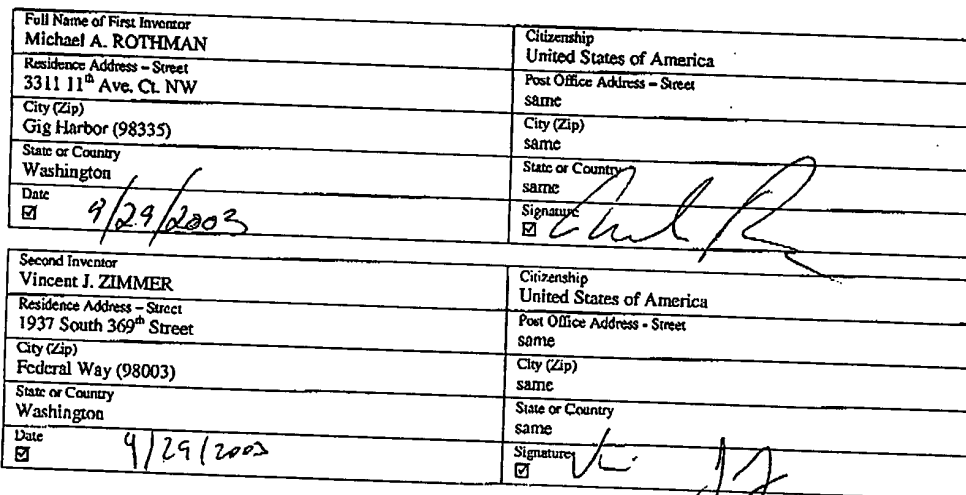 Full Name of First Inventor
Michael A. ROTHMAN
Citizenship
United States of America
Residence Address – Street
3311 11th Ave. Ct. NW
Post Office Address – Street
same
City (Zip)
Gig Harbor (98335)
City (Zip)
same
State or Country
Washington
State or Country
same
Date
☑ 9/29/2003
Signature
☑
Second Inventor
Vincent J. ZIMMER
Citizenship
United States of America
Residence Address – Street
1937 South 369th Street
Post Office Address - Street
same
City (Zip)
Federal Way (98003)
City (Zip)
same
State or Country
Washington
State or Country
same
Date
☑ 9/29/2003
Signature
☑